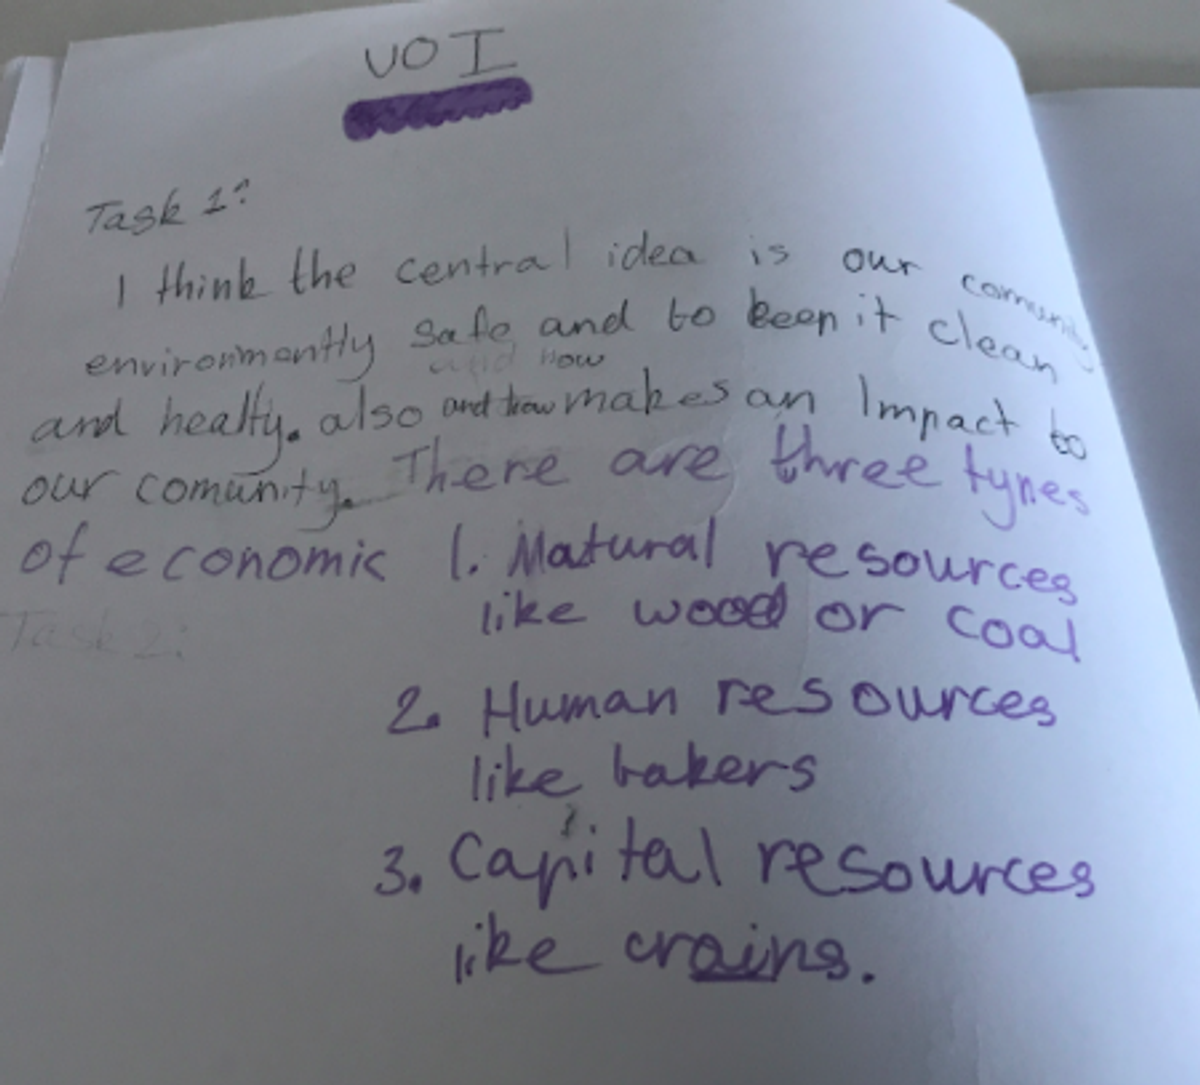 UOI
Task 1:
I think the central idea is our comunity
environmently safe and to keep it clean
and how
and healty. also and how makes an Impact to
our comunity. There are three types
of economic 1. Natural resources
like wood or coal
Task 2:
2. Human resources
like bakers
3. Capital resources
like crains.